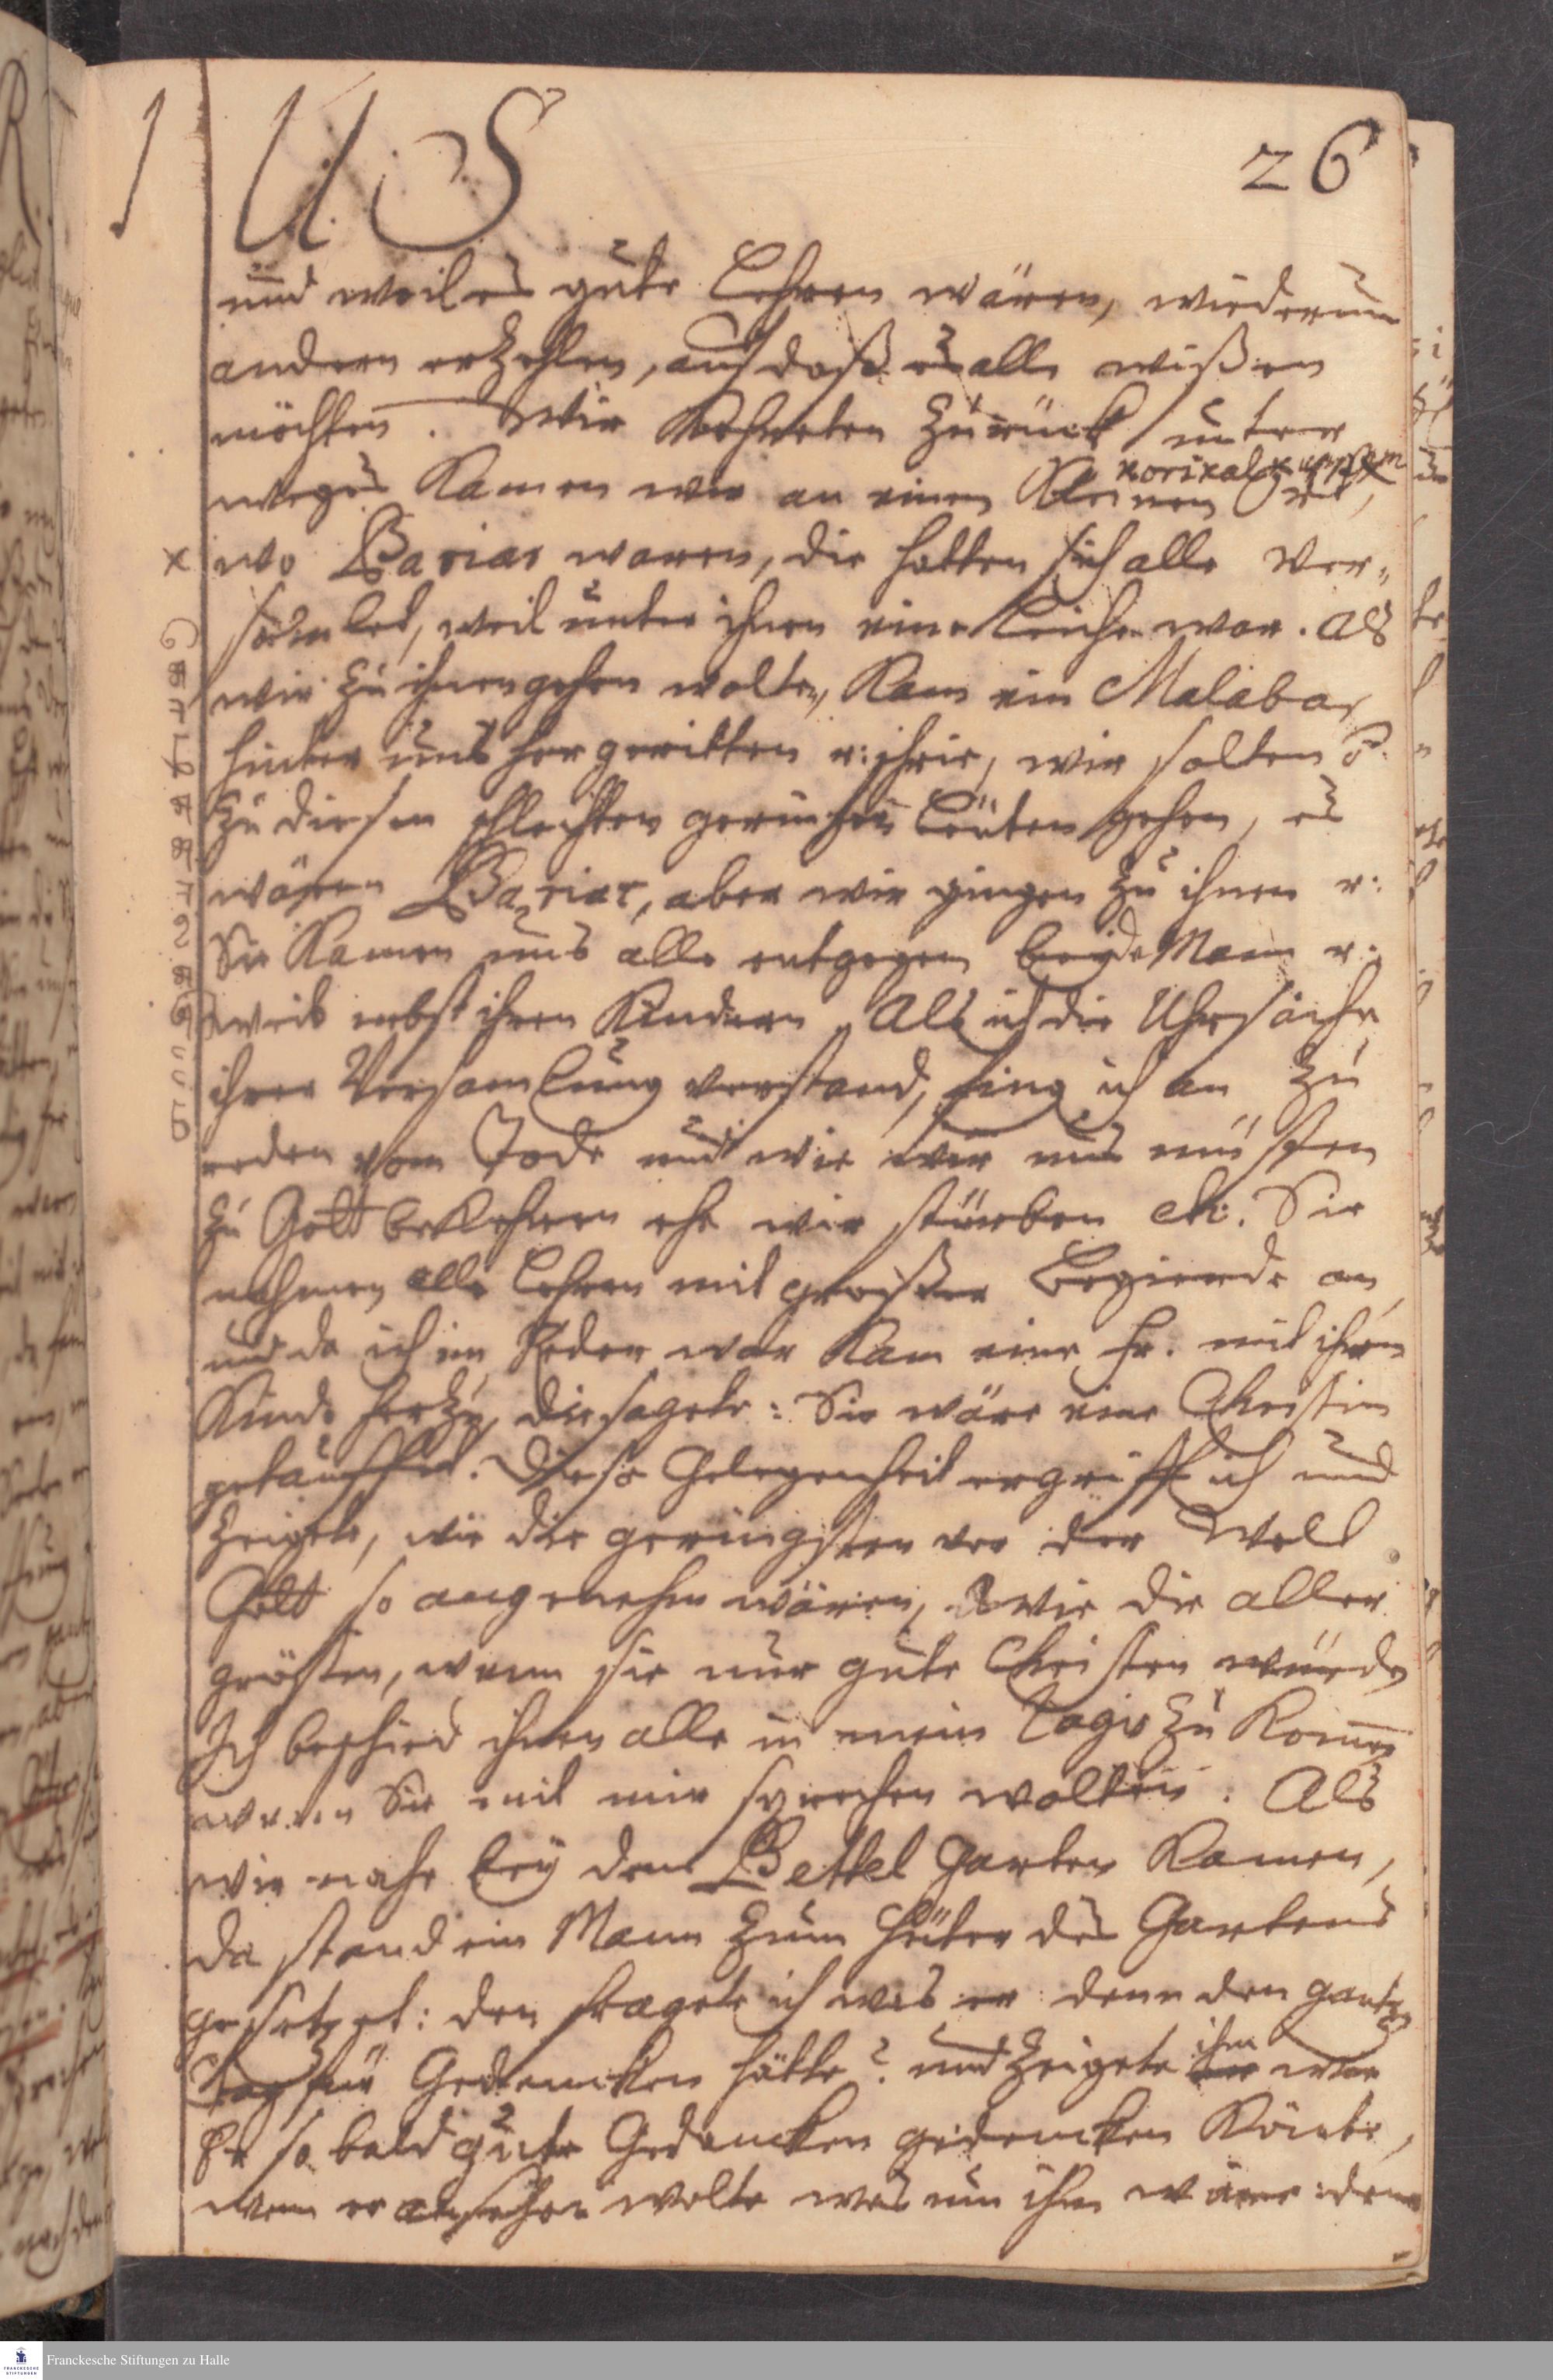 1 U. S 26
und weil es gute Lehren wären, wiederum
andern erzehlen, auf daß es alle wißen
möchten. Wir kehreten zurück unter
weges kamen wir an einen kleinen Ort,
wo Barias waren, die hatten sich alle ver„
samlet, weil unter ihnen eine Leiche war. Als
wir zu ihnen gehen wolten, kam ein Malabar
hinter uns her geritten u: schrie, wir solten
zu diesen schlechten geringen Leuten gehen, es
wären Barias, aber wir gingen zu ihnen u:
Sie kamen uns alle entgegen beyde Mann u:
weib nebst ihren Kindern. Als ich die Uhrsache
ihrer Versamlung verstand, fing ich an zu
reden vom Tode und wie wir uns müsten
zu Gott bekehren ehe wir stürben etc. Sie
nahmen alle Lehren mit großer Begierde an,
und da ich im Reden war kam eine Fr. mit ihrem
Kinde herzu, die sagete: Sie wäre eine Christin
getauffet. Diese Gelegenheit ergriff ich und
zeigete, wie die geringsten vor der Welt
Gott so angenehm wären, wie die aller
grösten, wenn sie nur gute Christen würden
Ich beschied ihnen alle in mein Logis zu kommen
wenn Sie mit mir sprechen wolten. Als
wir nahe bey dem Bettel Garten kamen,
da stand ein Mann zum Hüter des Gartens
gesetzet: den fragete ich was er denn den gantzen
Tag für Gedancken hätte? und zeigete ihm wie
Er so bald gute Gedancken gedencken könte,
wenn er ansehen wolte was um ihm wäre: denn
Franckesche Stiftungen zu Halle